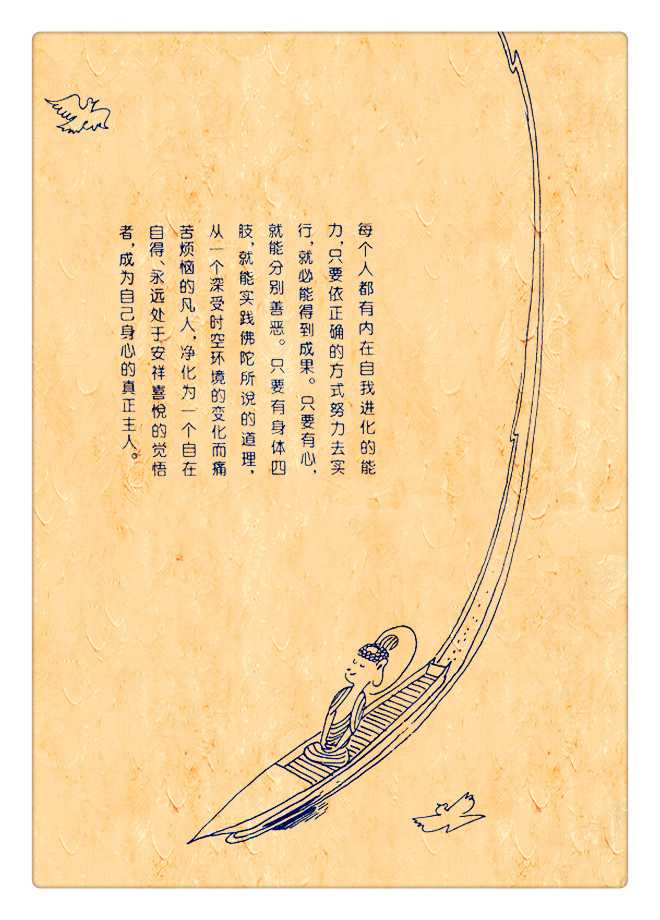 每个人都有内在自我进化的能
力，只要依正确的方式努力去实
行，就必能得到成果。只要有心，
就能分别善恶。只要有身体四
肢，就能实践佛陀所说的道理，
从一个深受时空环境的变化而痛
苦烦恼的凡人，净化为一个自在
自得、永远处于安祥喜悦的觉悟
者，成为自己身心的真正主人。